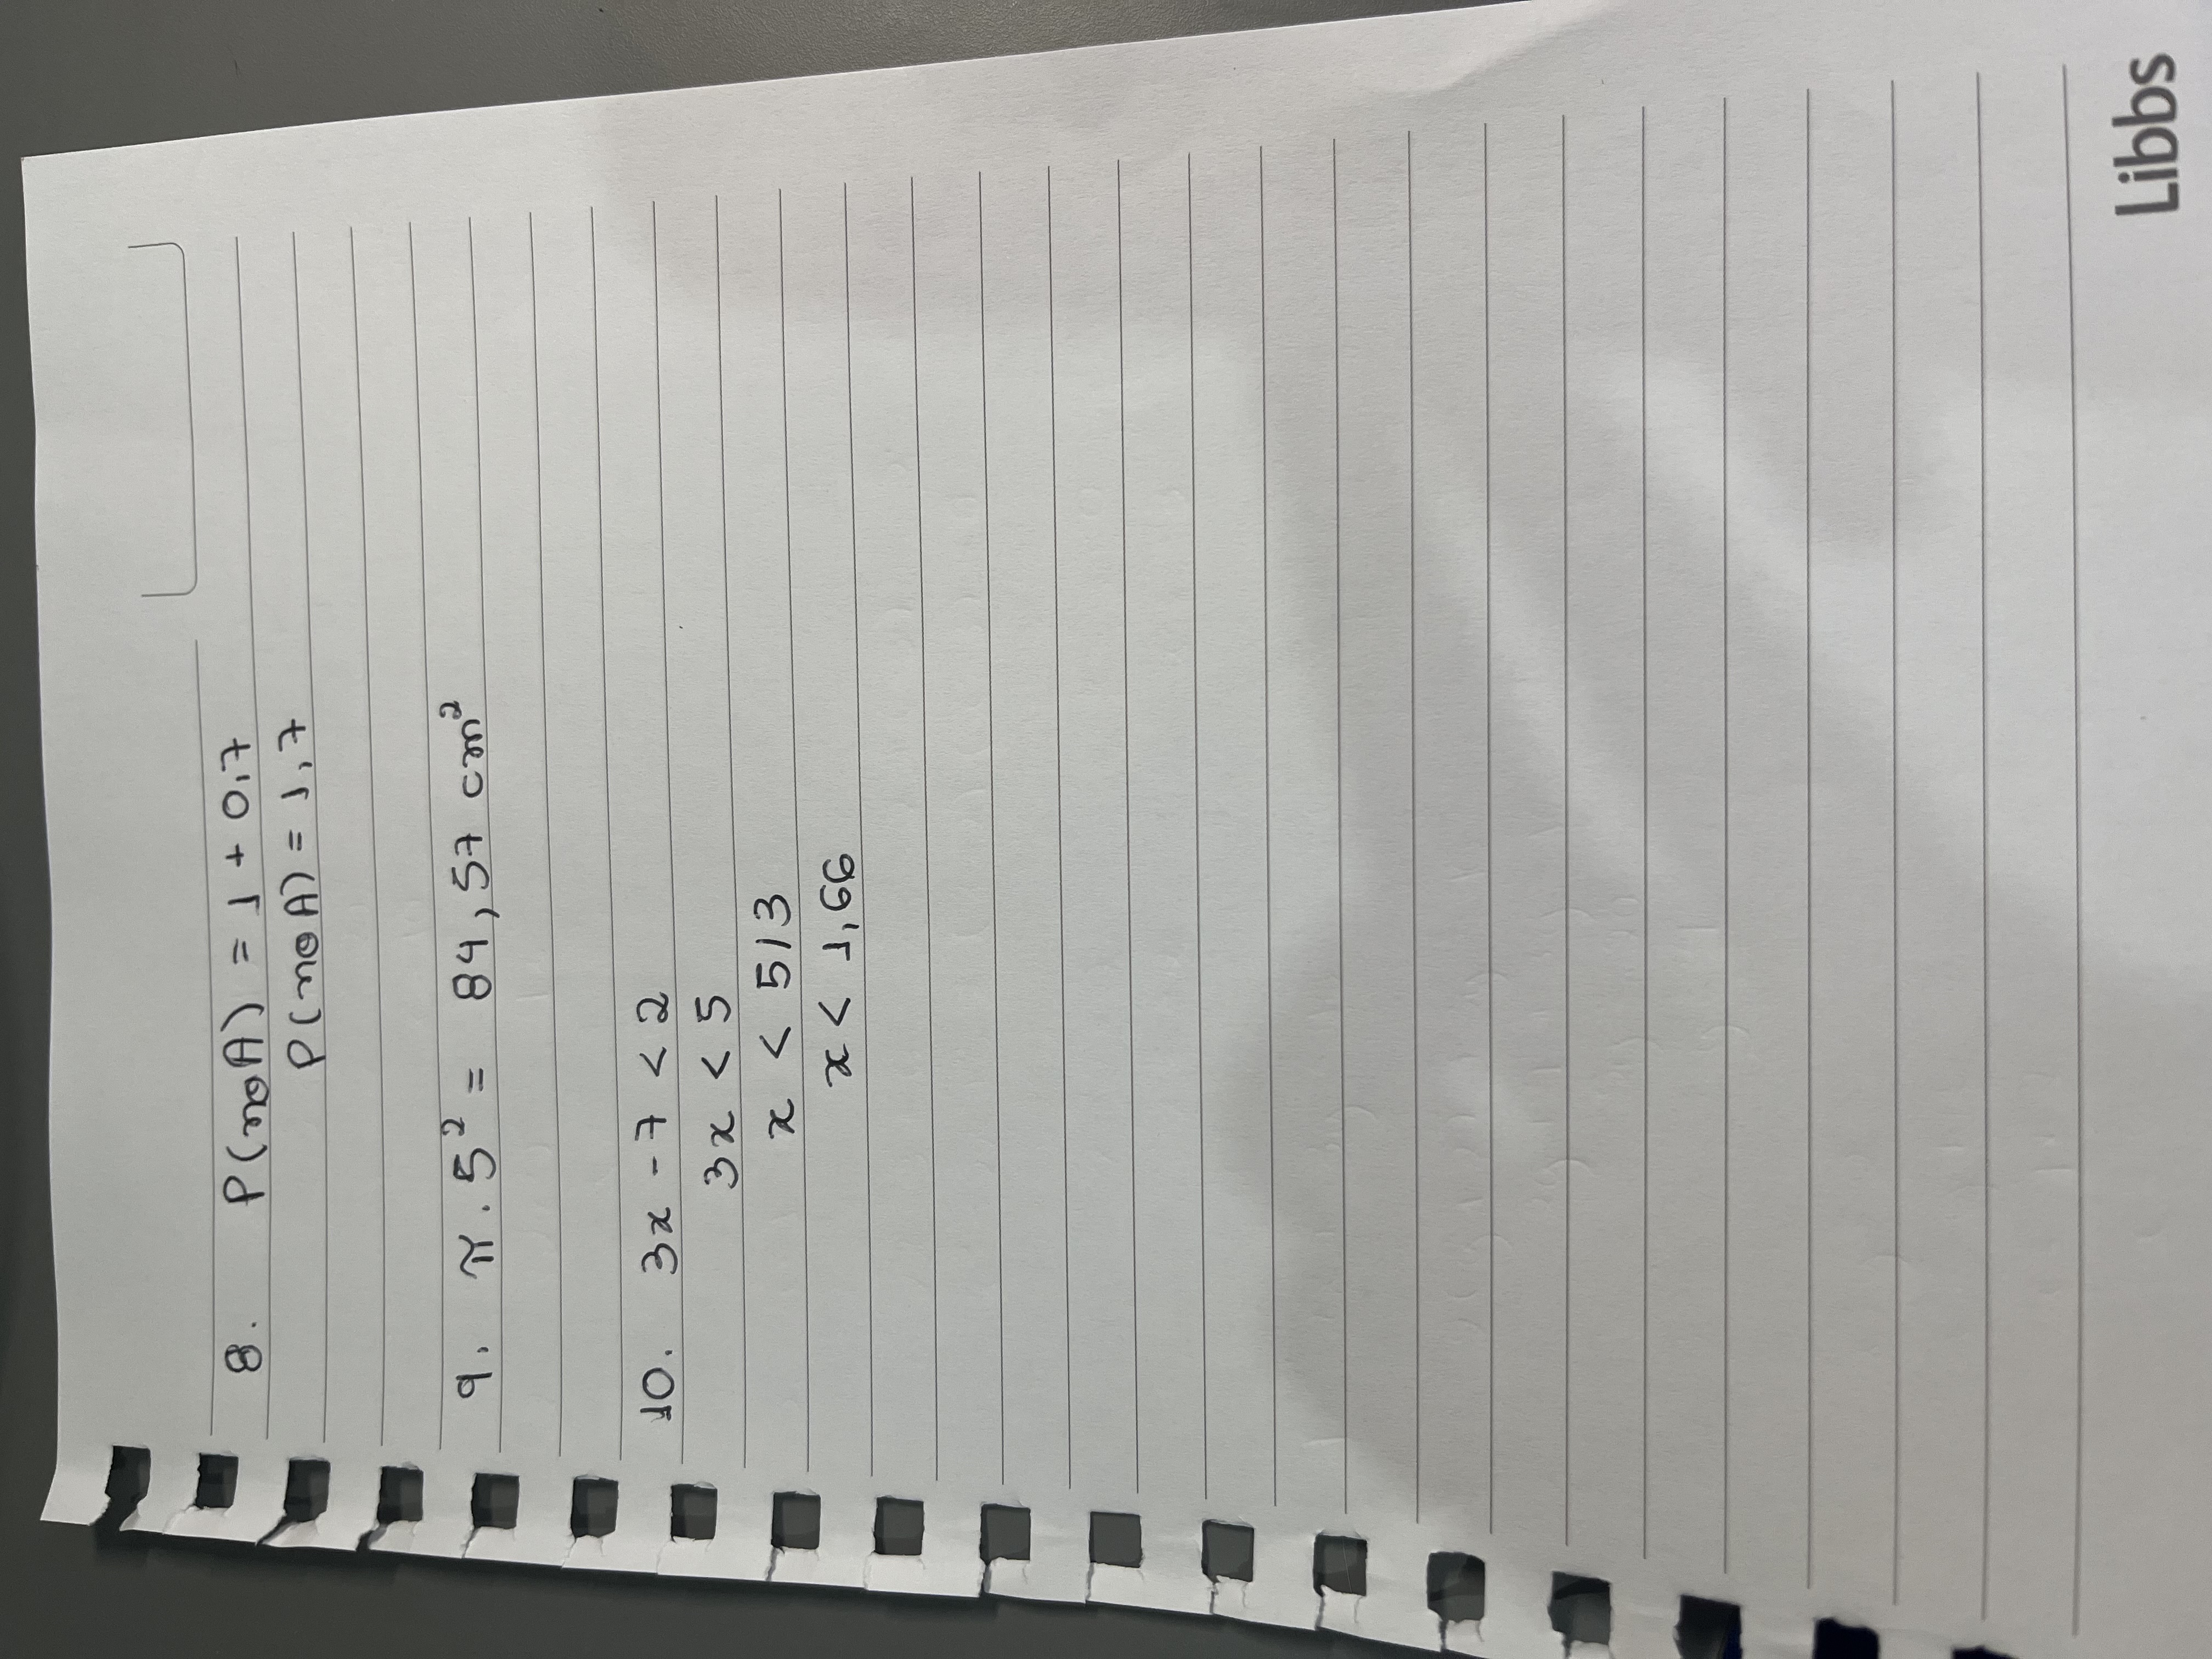 8. P(noA) = 1 + 0,7
P(noA) = 1,7
9. π . 5² = 84,57 cm²
10. 3x - 7 < 2
3x < 5
x < 5/3
x < 1,66
Libbs